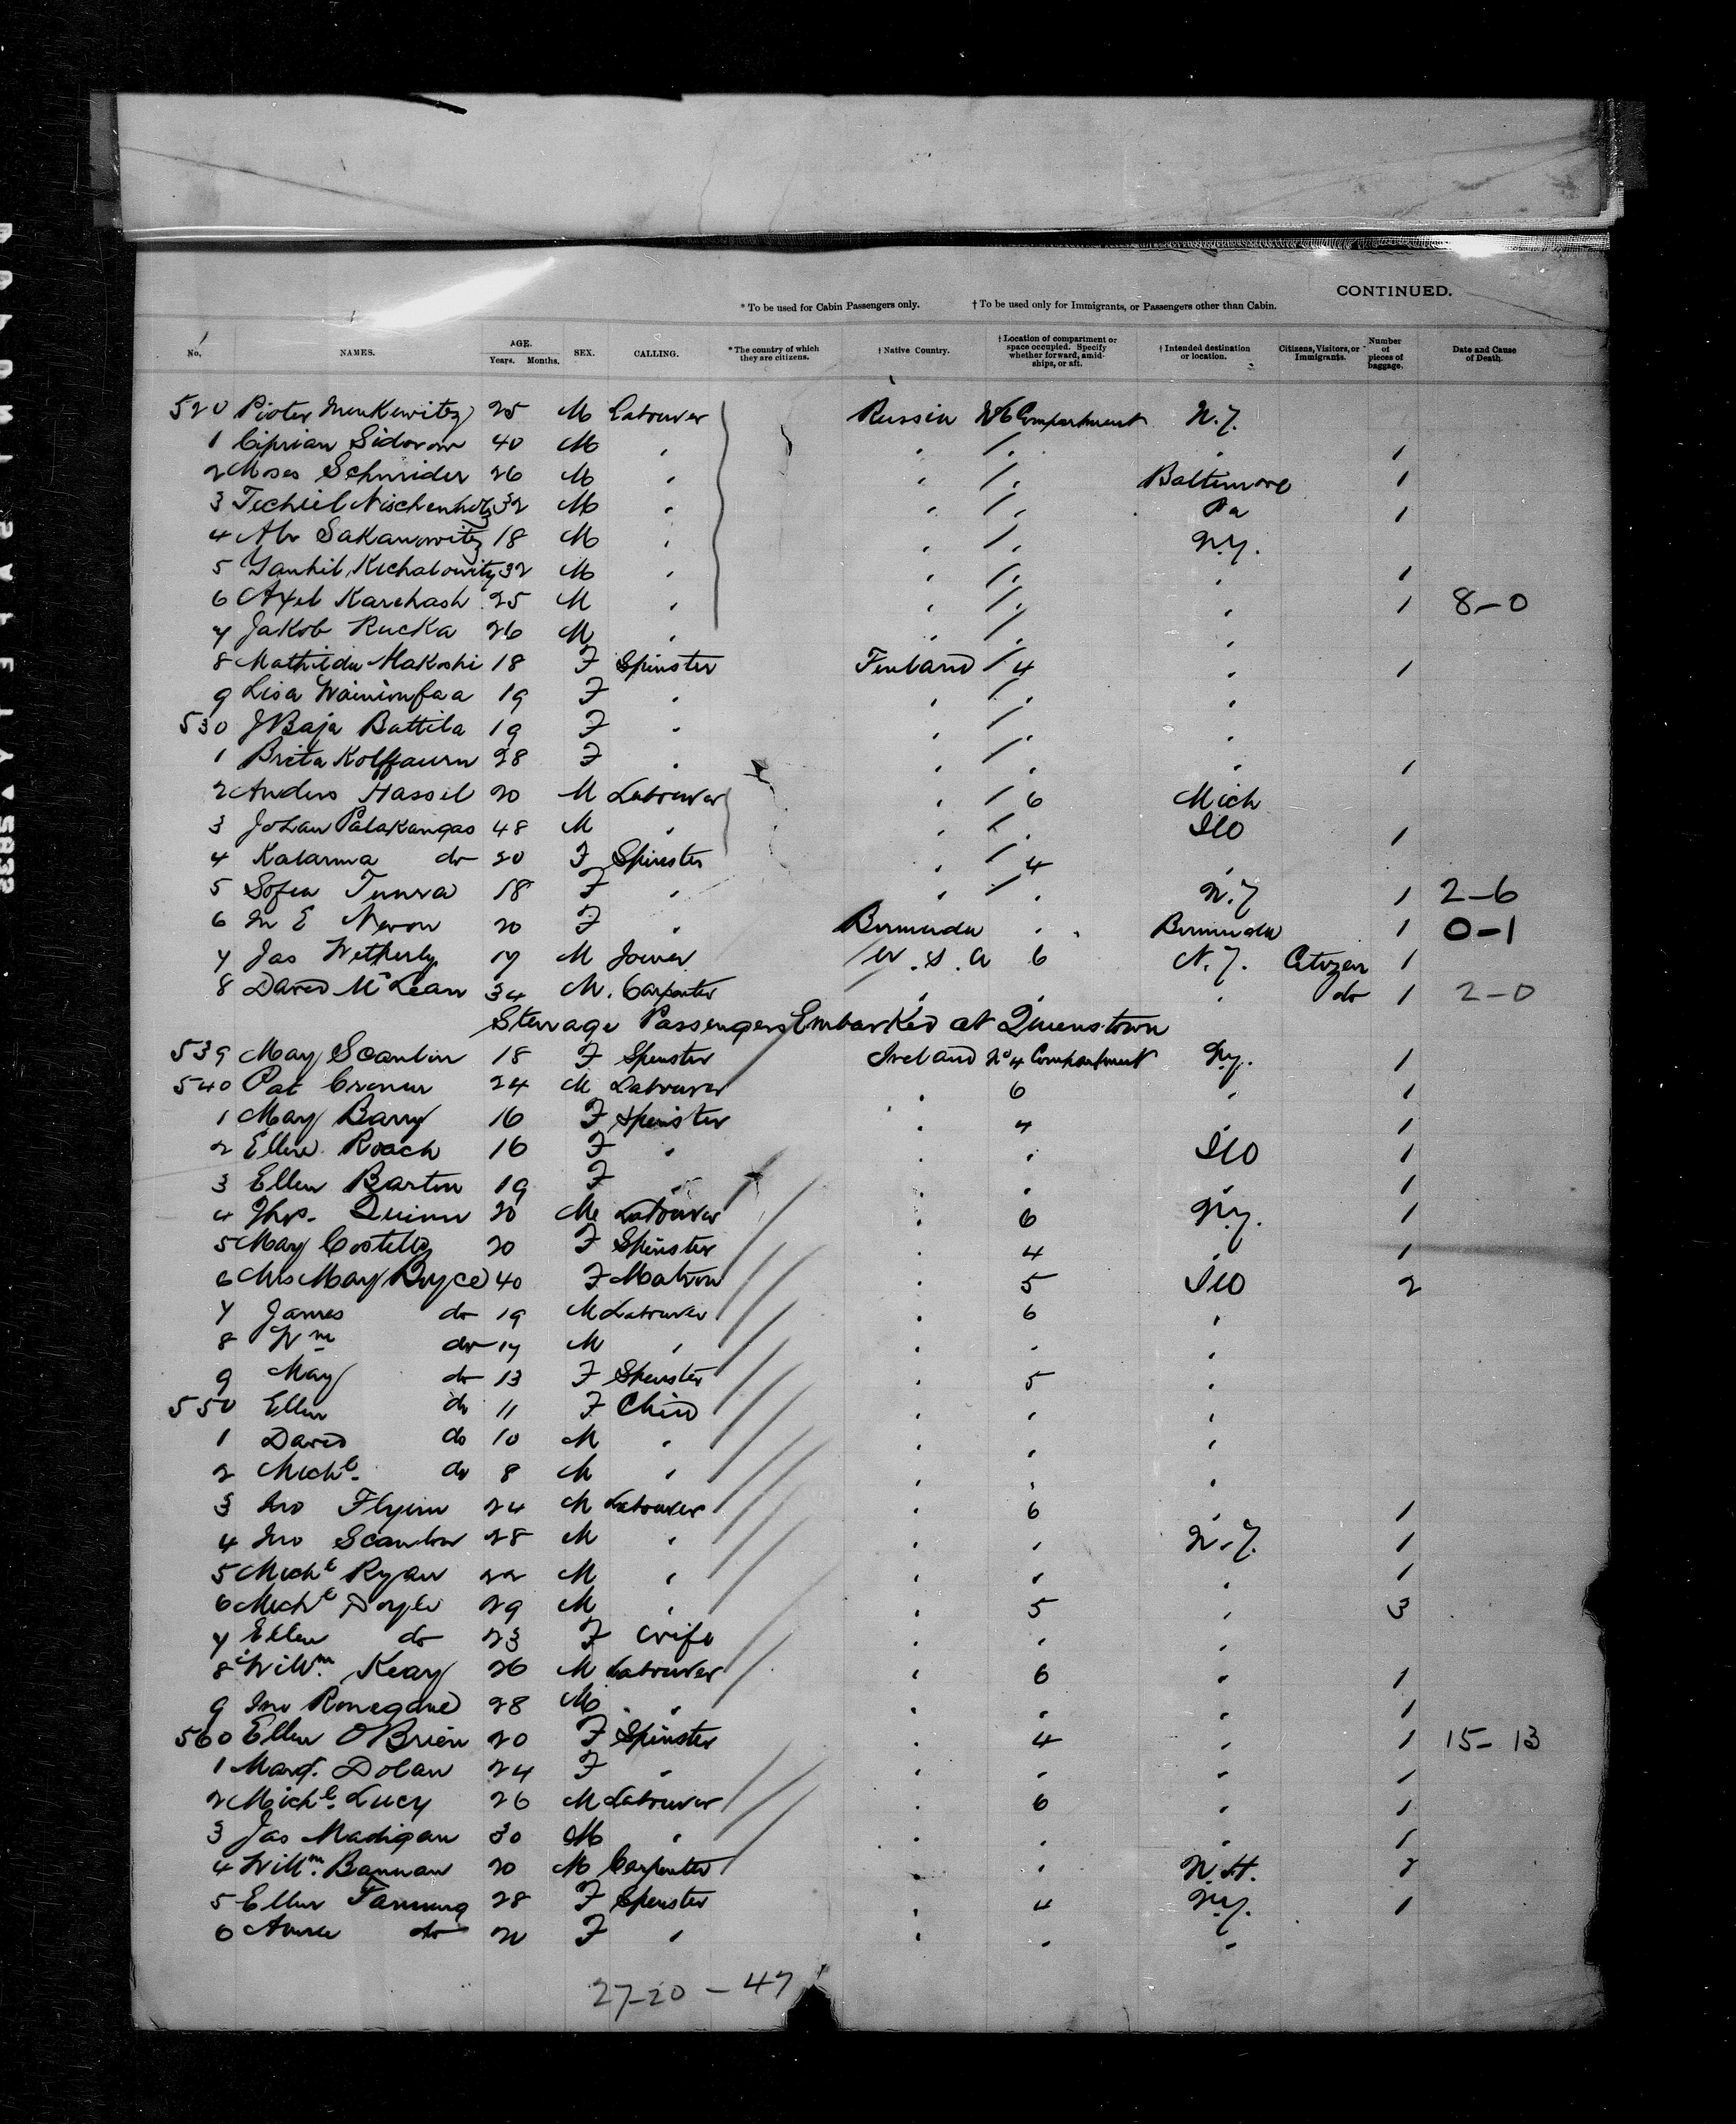 CONTINUED.
* To be used for Cabin Passengers only. † To be used only for Immigrants, or Passengers other than Cabin.
No. NAMES. AGE. Years. Months. SEX. CALLING. * The country of which they are citizens. † Native Country. † Location of compartment or space occupied. Specify whether forward, amidships, or aft. † Intended destination or location. Citizens, Visitors, or Immigrants. Number of pieces of baggage. Date and Cause of Death.
520 Pioter 25 M Labourer Russia No 6 Compartment N.Y.
1 Ciprian Sidorow 40 M " " " " 1
2 Moses Schneider 26 M " " " Baltimore 1
3 32 M " " " Pa 1
4 Abr Sakanowitz 18 M " " " N.Y.
5 32 M " " " " 1
6 Axel Karehash 25 M " " " " 1 8-0
7 Jakob Rucka 26 M " " " "
8 Mathilda Makoshi 18 F Spinster Finland 4 " 1
9 Lisa 19 F " " " "
530 Battila 19 F " " " "
1 Brita 28 F " " " " 1
2 Anders Hassel 20 M Labourer " 6 Mich
3 Johan Palakangas 48 M " " " Ill 1
4 Kalarina do 20 F Spinster " 4 "
5 Sofia 18 F " " " N.Y 1 2-6
6 M E 20 F " Bermuda " Bermuda 1 0-1
7 Jas Wetherly 17 M Joiner U.S.A 6 N.Y. Citizen 1
8 David McLean 34 M. Carpenter " " " do 1 2-0
Steerage Passengers Embarked at Queenstown
539 May Scanlin 18 F Spinster Ireland No 4 Compartment N.Y. 1
540 Pat Cronin 24 M Labourer " 6 " 1
1 May Barry 16 F Spinster " 4 " 1
2 Ellen Roach 16 F " " " Ill 1
3 Ellen Barton 19 F " " " " 1
4 Thos. Quinn 20 M Labourer " 6 N.Y. 1
5 May Costello 20 F Spinster " 4 " 1
6 Mrs May Boyce 40 F Matron " 5 Ill 2
7 James do 19 M Labourer " 6 "
8 Wm do 17 M " " " "
9 May do 13 F Spinster " 5 "
550 Ellen do 11 F Child " " "
1 David do 10 M " " " "
2 Michl. do 8 M " " " "
3 Jno Flynn 24 M Labourer " 6 " 1
4 Jno Scanlon 28 M " " " N.Y. 1
5 Michl Ryan 22 M " " " " 1
6 Michl Doyle 29 M " " 5 " 3
7 Ellen do 23 F Wife " " "
8 Willm. Keary 26 M Labourer " 6 " 1
9 Jno 28 M " " " " 1
560 Ellen O'Brien 20 F Spinster " 4 " 1 15-13
1 Margt. Dolan 24 F " " " " 1
2 Michl. Lucy 26 M Labourer " 6 " 1
3 Jas Madigan 30 M " " " " 1
4 Willm. Bannan 20 M Carpenter " " N.H. 2
5 Ellen Fanning 28 F Spinster " 4 N.Y. 1
6 Annie do 20 F " " " "
27-20-47